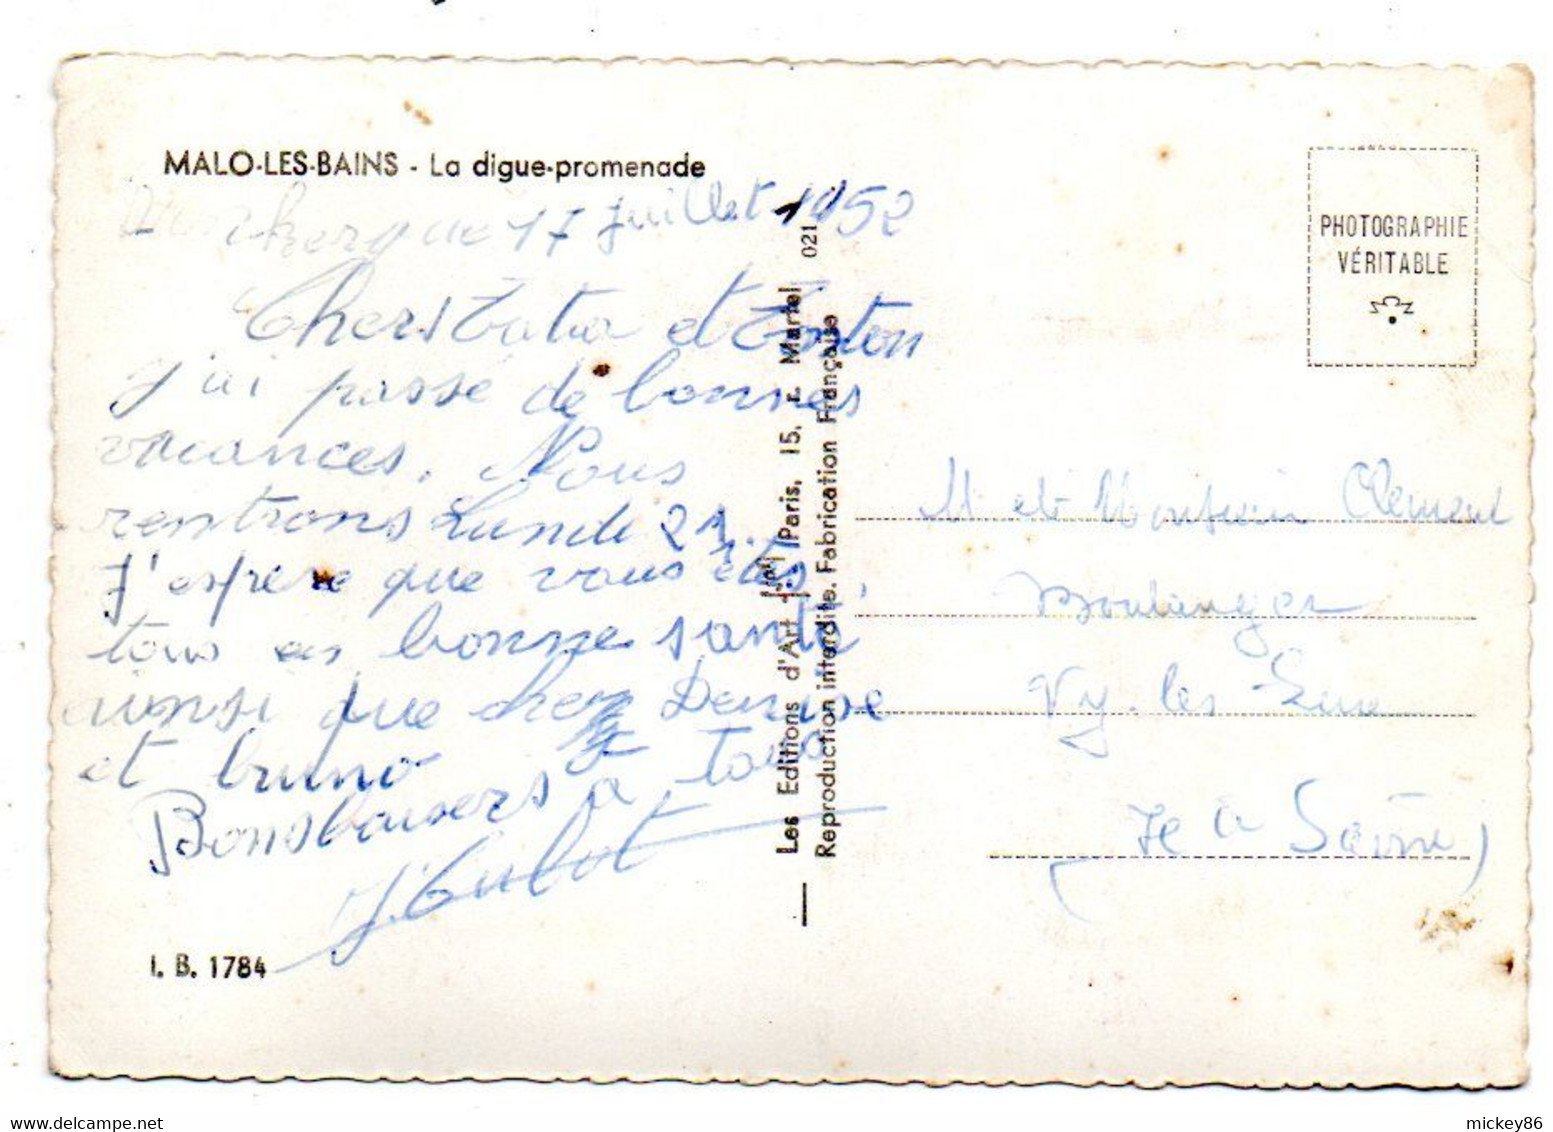 MALO-LES-BAINS - La digue-promenade
Dunkerque 17 Juillet 1952
Chers Tata et Tonton
J'ai passé de bonnes
vacances. Nous
rentrons Lundi 21.
J'espère que vous êtes
tous en bonne santé
ainsi que chez Denise
et bruno
Bons baisers a tous
I. B. 1784
Les Editions d'Art (Paris, 15, r. Martel 021
Reproduction interdite. Fabrication Française
PHOTOGRAPHIE
VÉRITABLE
M et Clement
Boulanger
Vy. les
(Hte Saône)
www.delcampe.net
mickey86